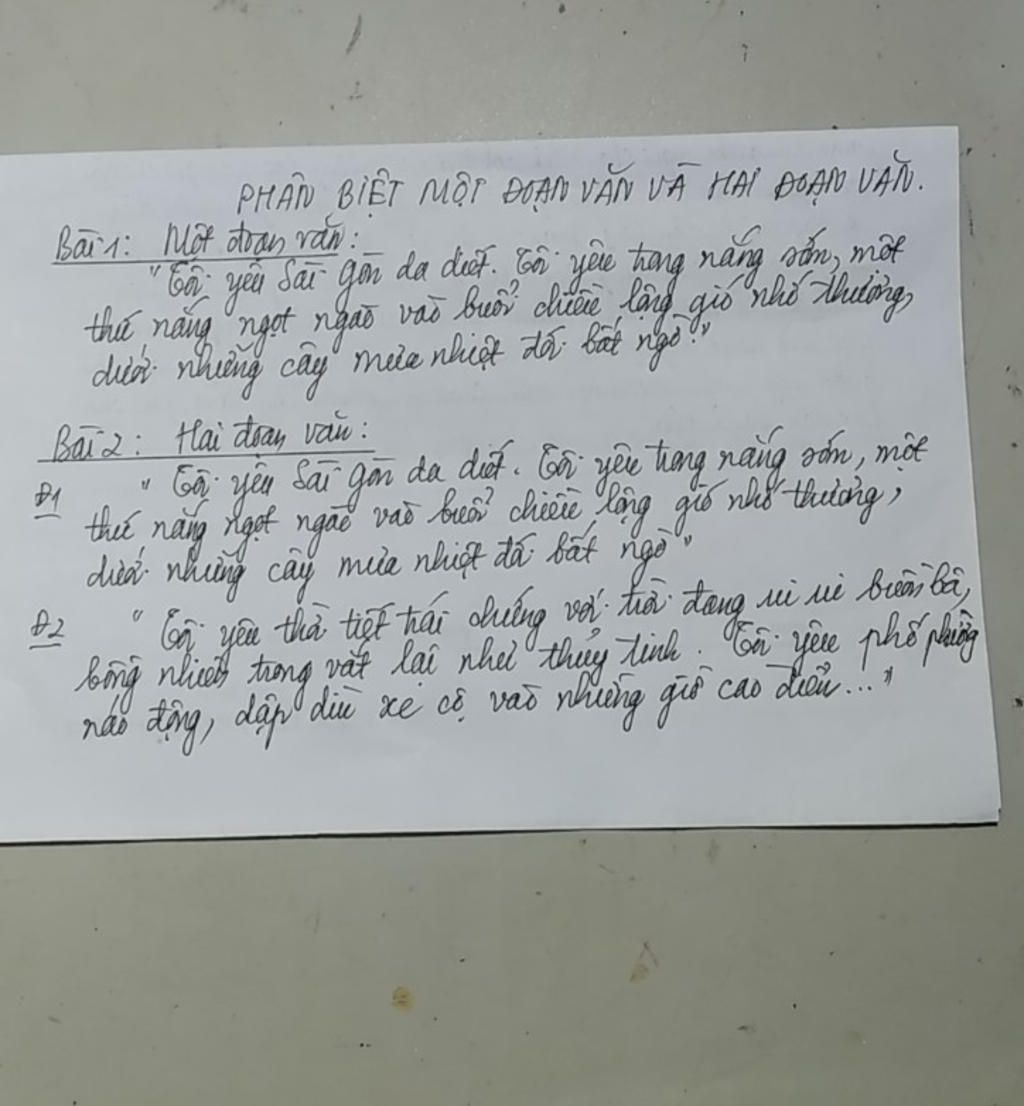 PHÂN BIỆT MỘT ĐOẠN VĂN VÀ HAI ĐOẠN VĂN.
Bài 1: Một đoạn văn:
"Tôi yêu Sài Gòn da diết. Tôi yêu trong nắng sớm, một
thứ nắng ngọt ngào vào buổi chiều lộng gió nhớ thương,
dưới những cây mưa nhiệt đới bất ngờ."
Bài 2: Hai đoạn văn:
Đ1 "Tôi yêu Sài Gòn da diết. Tôi yêu trong nắng sớm, một
thứ nắng ngọt ngào vào buổi chiều lộng gió nhớ thương,
dưới những cây mưa nhiệt đới bất ngờ"
Đ2 "Tôi yêu thời tiết trái chứng với trời đang ui ui buồn bã,
bỗng nhiên trong vắt lại như thủy tinh. Tôi yêu phố phường
náo động, dập dìu xe cộ vào những giờ cao điểm..."